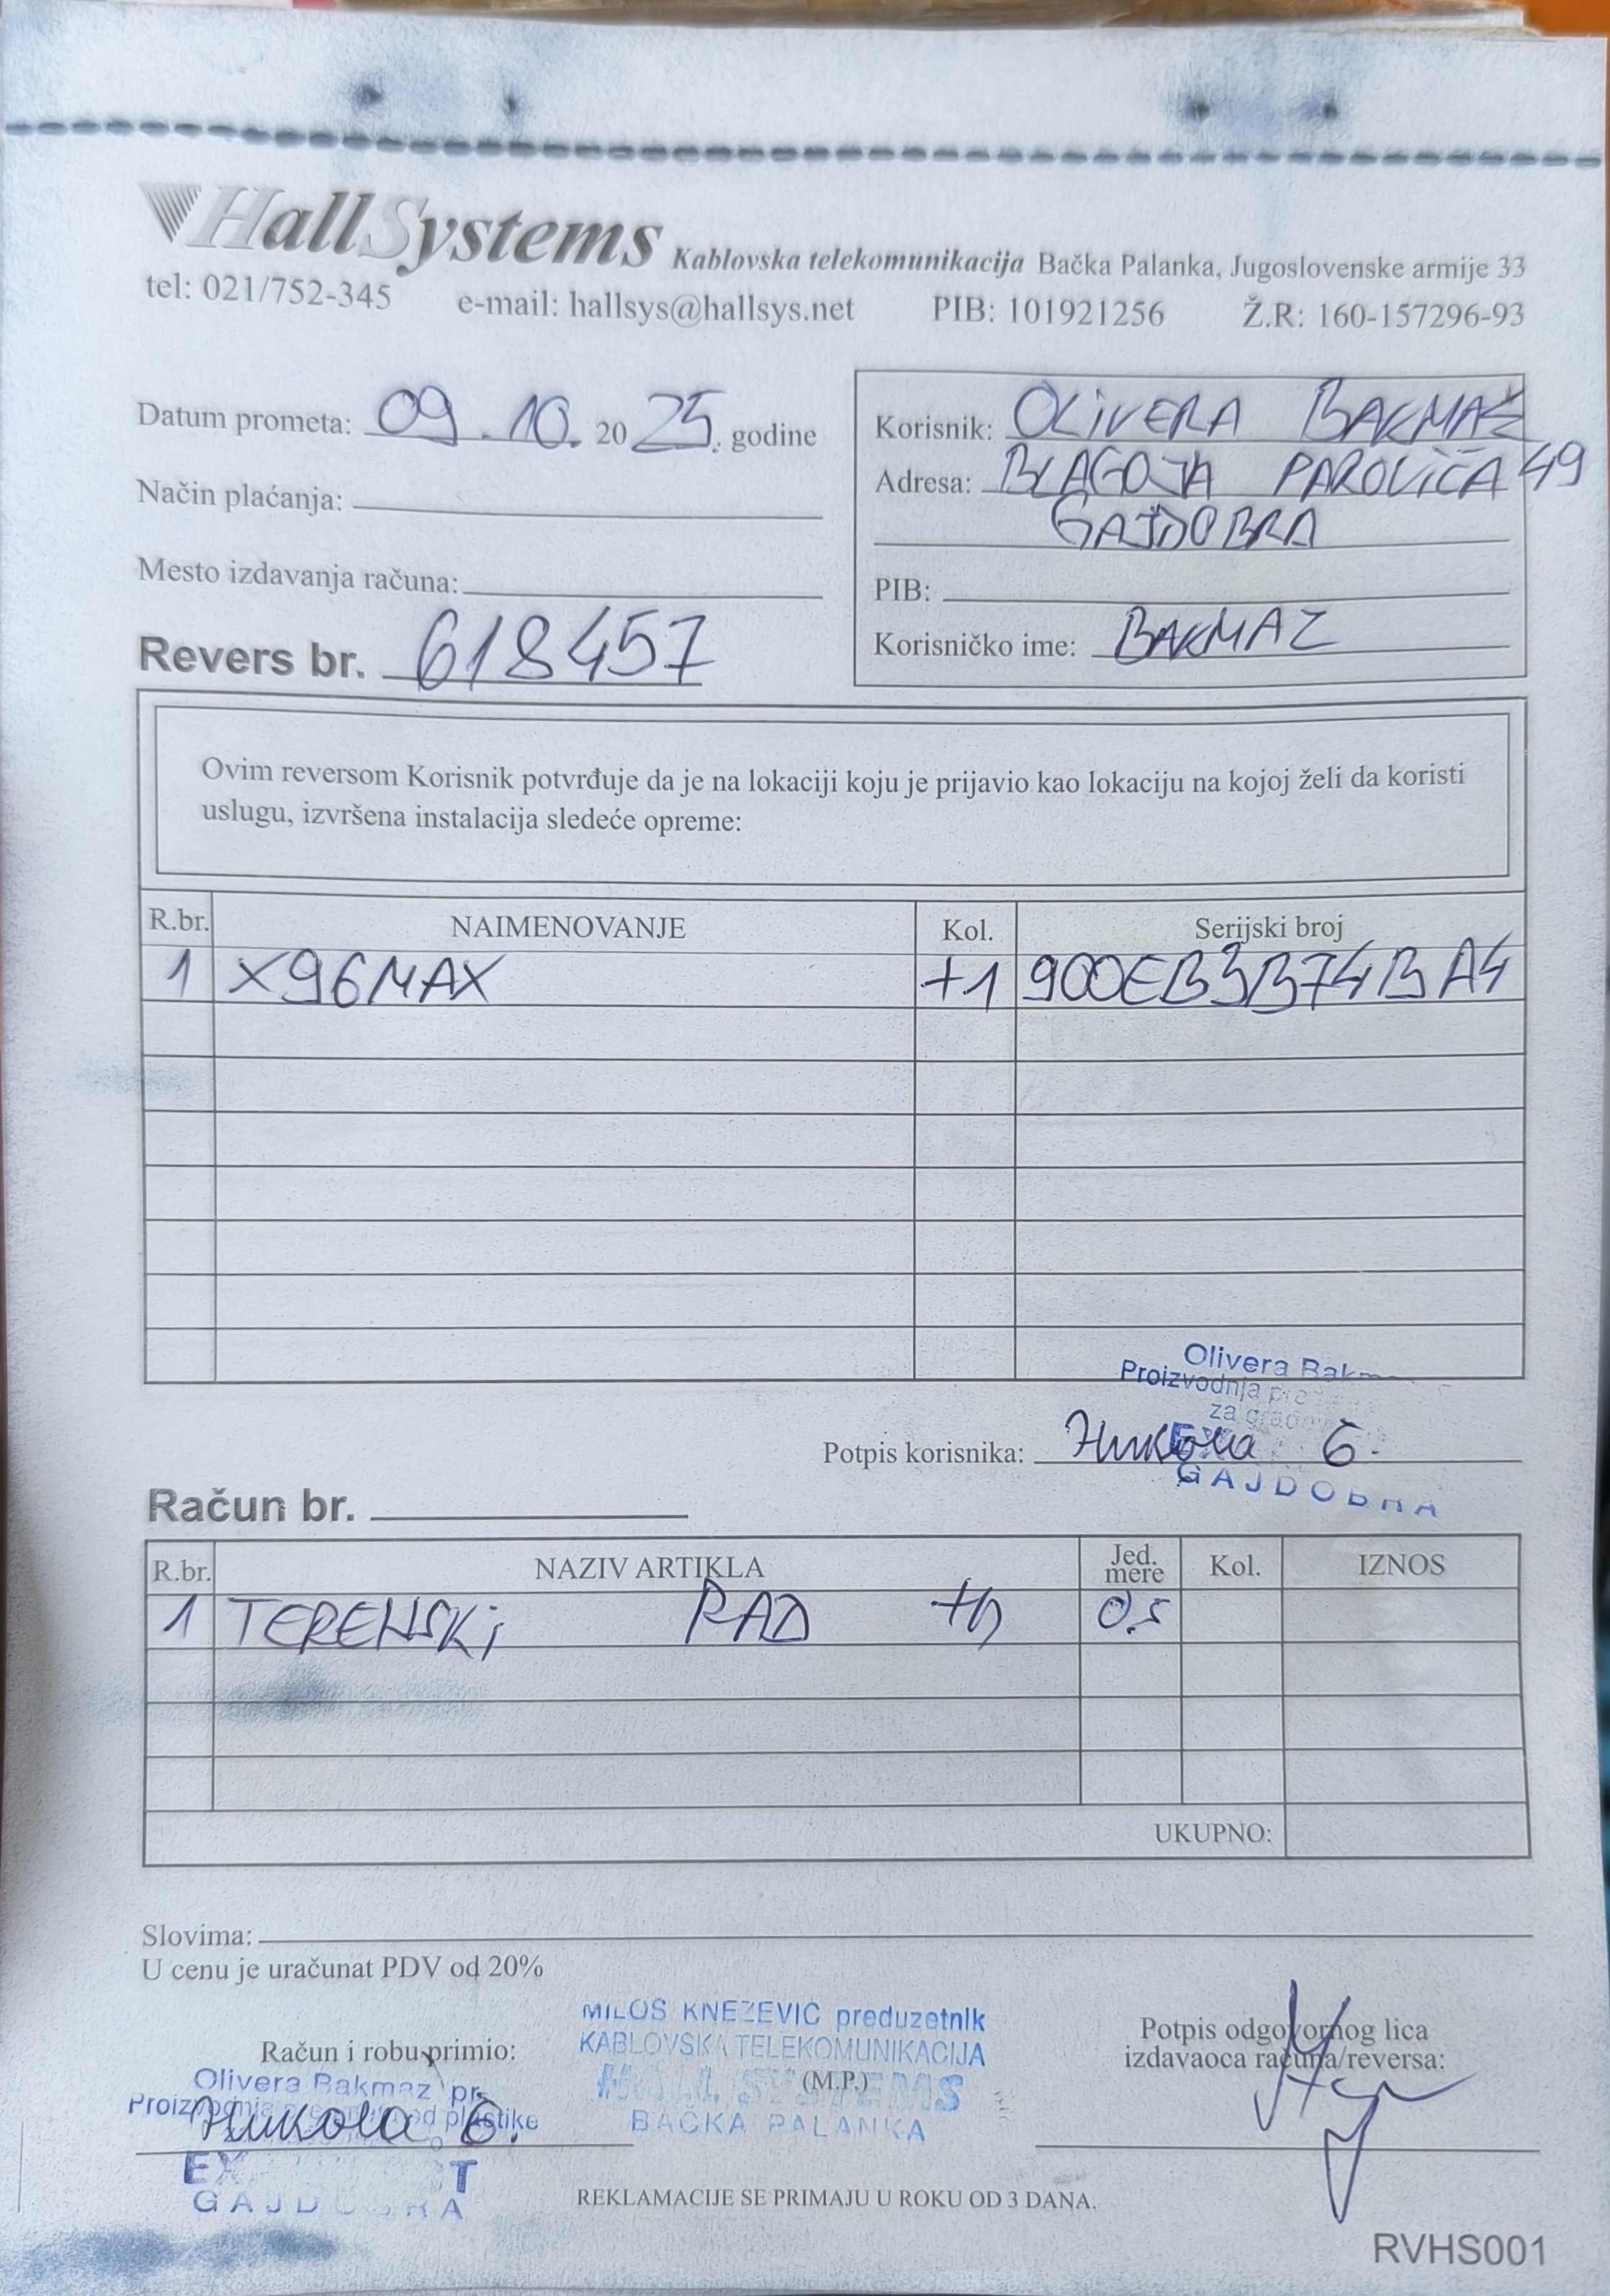 HallSystems Kablovska telekomunikacija Bačka Palanka, Jugoslovenske armije 33
tel: 021/752-345 e-mail: hallsys@hallsys.net PIB: 101921256 Ž.R: 160-157296-93
Datum prometa: 09.10.2025. godine
Način plaćanja:
Mesto izdavanja računa:
Revers br. 618457
Korisnik: OLIVERA BAKMAZ
Adresa: BLAGOJA PAROVIĆA 49
GAJDOBRA
PIB:
Korisničko ime: BAKMAZ
Ovim reversom Korisnik potvrđuje da je na lokaciji koju je prijavio kao lokaciju na kojoj želi da koristi
uslugu, izvršena instalacija sledeće opreme:
R.br. NAIMENOVANJE Kol. Serijski broj
1 X96MAX +1 900EB3B74BA4
Olivera
Proizvodnja
za
GAJDOBRA
Potpis korisnika: Никола Б.
Račun br.
R.br. NAZIV ARTIKLA Jed. mere Kol. IZNOS
1 TERENSKI RAD 0.5
UKUPNO:
Slovima:
U cenu je uračunat PDV od 20%
Račun i robu primio:
Olivera Bakmaz pr.
Proizvodnja od plastike
Никола Б.
GAJDOBRA
MILOŠ KNEŽEVIĆ preduzetnik
KABLOVSKA TELEKOMUNIKACIJA
HALL SYSTEMS
(M.P.)
BAČKA PALANKA
Potpis odgovornog lica
izdavaoca računa/reversa:
REKLAMACIJE SE PRIMAJU U ROKU OD 3 DANA.
RVHS001